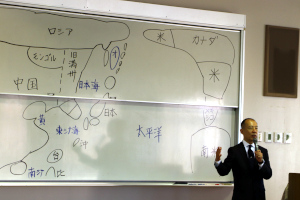 ロシア
米
カナダ
モンゴル
旧満州
米
中国
日本海
日本
黄
東シナ海
沖
太平洋
台
南
南シナ
比